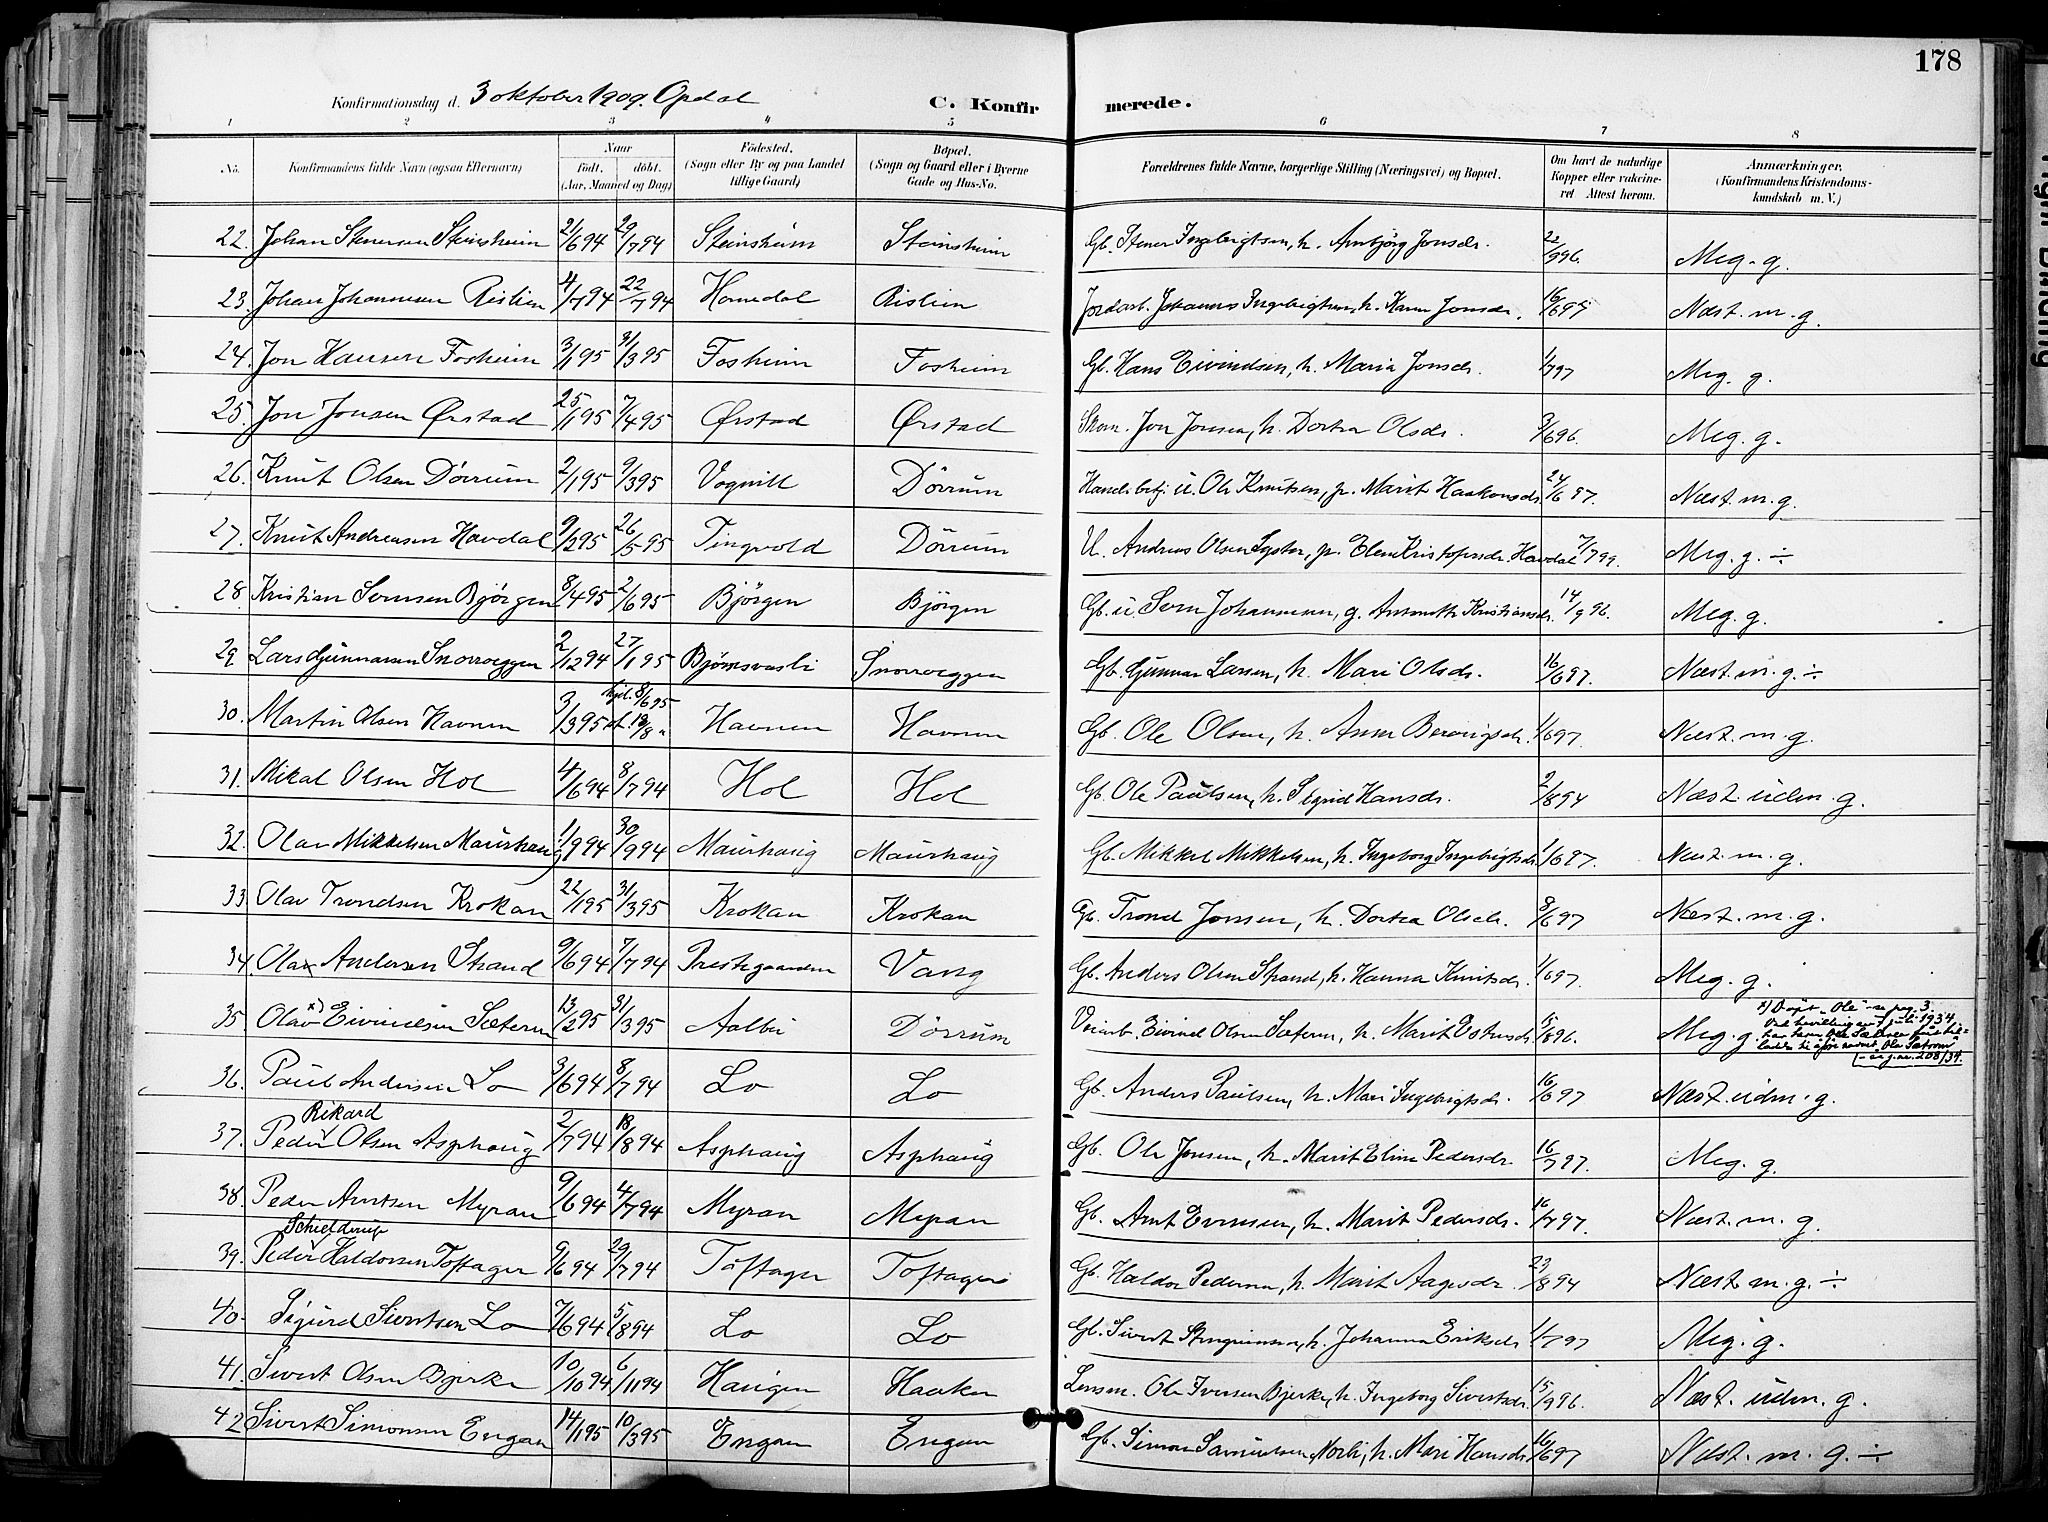 178
Konfirmationsdag d. 3 oktober 1909. Opdal C. Konfir merede.
1 2 3 4 5 6 7 8
No. Konfirmandens fulde Navn (ogsaa Efternavn) Naar født. døbt. (Aar, Maaned og Dag) Fødested. (Sogn eller By og paa Landet tillige Gaard) Bopæl. (Sogn og Gaard eller i Byerne Gade og Hus-No. Forældrenes fulde Navne, borgerlige Stilling (Næringsvei) og Bopæl. Om havt de naturlige Kopper eller vakcineret Attest herom. Anmærkninger, (Konfirmandens Kristendomskundskab m. V.)
22. Johan Stenersen Steinsheim 2/6 94 29/7 94 Steinsheim Steinsheim Gb. Stener Ingebrigtsen, h. Arnbjörg Jonsdr. 22/9 96. Meg. g.
23. Johan Johannesen Rislien 4/7 94 22/7 94 Horredal Rislien Jordarb. Johannes Ingebrigtsen, h. Karen Jonsdr. 16/6 97 Næst. m. g.
24. Jon Hansen Fosheim 3/1 95 31/3 95 Fosheim Fosheim Gb. Hans Eivindsen, h. Maria Jonsdr. 1/7 97 Meg. g.
25. Jon Jonsen Ørstad 25/1 95 7/4 95 Ørstad Ørstad Skom. Jon Jonsen, h. Dortea Olsdr. 3/6 96. Meg. g.
26. Knut Olsen Dørrum 2/1 95 9/3 95 Vognill Dørrum Handelsbetj. U. Ole Knutsen, p. Marit Haakonsdr. 24/6 97. Næst. m. g.
27. Knut Andreasen Havdal 9/2 95 26/5 95 Tingvold Dørrum U. Andreas Olsen, p. Elen Kristofersdr. Havdal 7/7 99. Meg. g. ÷
28. Kristian Svensen Bjørgen 8/4 95 2/6 95 Bjørgen Bjørgen Gb. u. Sven Johannesen, g. Kristiansdr. 14/9 96. Meg. g.
29 Lars Gunnarsen Snoroeggen 2/12 94 27/1 95 Bjørnsvasli Snoroeggen Gb. Gunnar Larsen, h. Mari Olsdr. 16/6 97. Næst. m. g. ÷
30. Martin Olsen Havnen 3/3 95 hjd. 8/6 95 st. 18/8 " Havnen Havnen Gb. Ole Olsen, h. Anne Beraigsdr. 1/6 97. Næst. m. g.
31. Mikal Olsen Hol 4/6 94 8/7 94 Hol Hol Gb. Ole Paulsen, h. Sigrid Hansdr. 2/8 94 Næst. udm. g.
32. Olav Mikkelsen Maurhaug 1/9 94 30/9 94 Maurhaug Maurhaug Gb. Mikkel Mikkelsen, h. Ingeborg Ingebrigtsdr. 1/6 97. Næst. m. g.
33. Olav Trondsen Krokan 22/1 95 31/3 95 Krokan Krokan Gb. Trond Jonsen, h. Dortea Olsdr. 8/6 97 Næst. m. g.
34. Olav Andersen Strand 9/6 94 7/7 94 Prestegaarden Vang Gb. Anders Olsen Strand, h. Hanna Knutsdr. 1/6 97. Meg. g.
35. Olav x) Eivindsen Sætern 13/2 95 31/3 95 Aalbu Dørrum Veiarb. Eivind Olsen Sætern, h. Marit Estensdr. 5/8 96. Meg. g. x) Døpt "Ole" se pag. 3. Ved bevilling av 7 juli 1934 har han Ole Sætern faatt tilladelse til å føre navnet "Ole Sætrom" - se j.nr. 208/34.
36. Paul Andersen Lo 3/6 94 8/7 94 Lo Lo Gb. Anders Paulsen, h. Mari Ingebrigtsdr. 16/6 97 Næst. udm. g.
37. Peder Rikard Olsen Asphaug 2/7 94 18/8 94 Asphaug Asphaug Gb. Ole Jonsen, h. Marit Eline Pedersdr. 16/7 97. Meg. g.
38. Peder Arntsen Myran 9/6 94 4/7 94 Myran Myran Gb. Arnt Evensen, h. Marit Pedersdr. 16/7 97. Næst. m. g.
39. Peder Schielderup Haldorsen Toftager 9/6 94 29/7 94 Toftager Toftager Gb. Haldor Pedersen, h. Marit Aagesdr. 29/8 94 Næst. m. g. ÷
40. Sigurd Sivertsen Lo 7/6 94 5/8 94 Lo Lo Gb. Sivert Stengrimsen, h. Johanna Eriksdr. 1/7 97 Meg. g.
41. Sivert Olsen Bjerke 10/10 94 6/11 94 Haugen Haaker Lensm. Ole Iversen Bjerke, h. Ingeborg Sivertsdr. 15/9 96. Næst. udm. g.
42 Sivert Simonsen Engan 14/1 95 10/3 95 Engan Engan Gb. Simon Samuelsen Norli, h. Mari Hansdr. 16/6 97 Næst. m. g. ÷